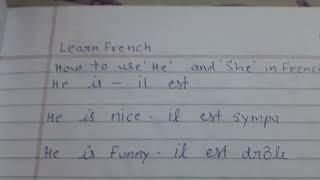 Learn French
How to use 'He' and 'She' in French
He is - il est
He is nice - il est sympa
He is Funny - il est drôle